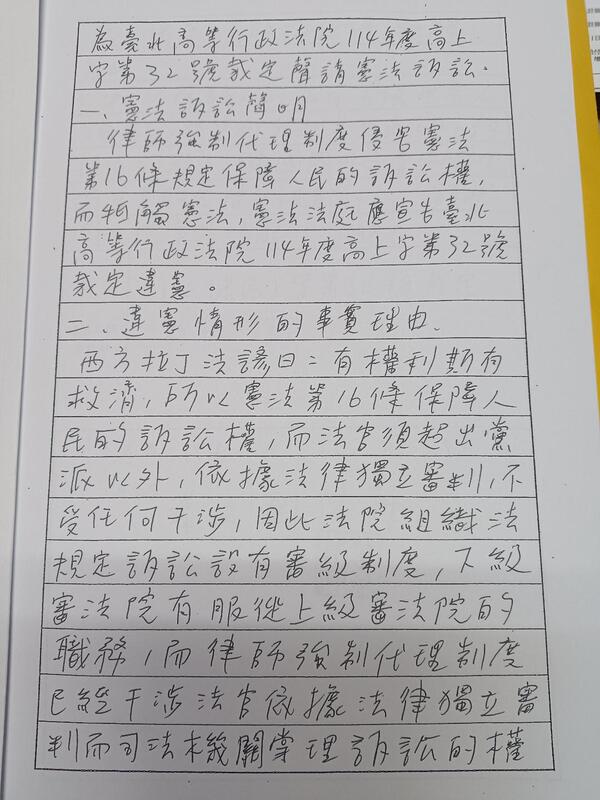 為臺北高等行政法院114年度高上
字第32號裁定聲請憲法訴訟.
一、憲法訴訟聲明
律師強制代理制度侵害憲法
第16條規定保障人民的訴訟權,
而牴觸憲法,憲法法庭應宣告臺北
高等行政法院114年度高上字第32號
裁定違憲。
二、違憲情形的事實理由.
西方拉丁法諺曰:有權利斯有
救濟,所以憲法第16條保障人
民的訴訟權,而法官須超出黨
派以外,依據法律獨立審判,不
受任何干涉,因此法院組織法
規定訴訟設有審級制度,下級
審法院有服從上級審法院的
職務,而律師強制代理制度
已經干涉法官依據法律獨立審
判而司法機關掌理訴訟的權